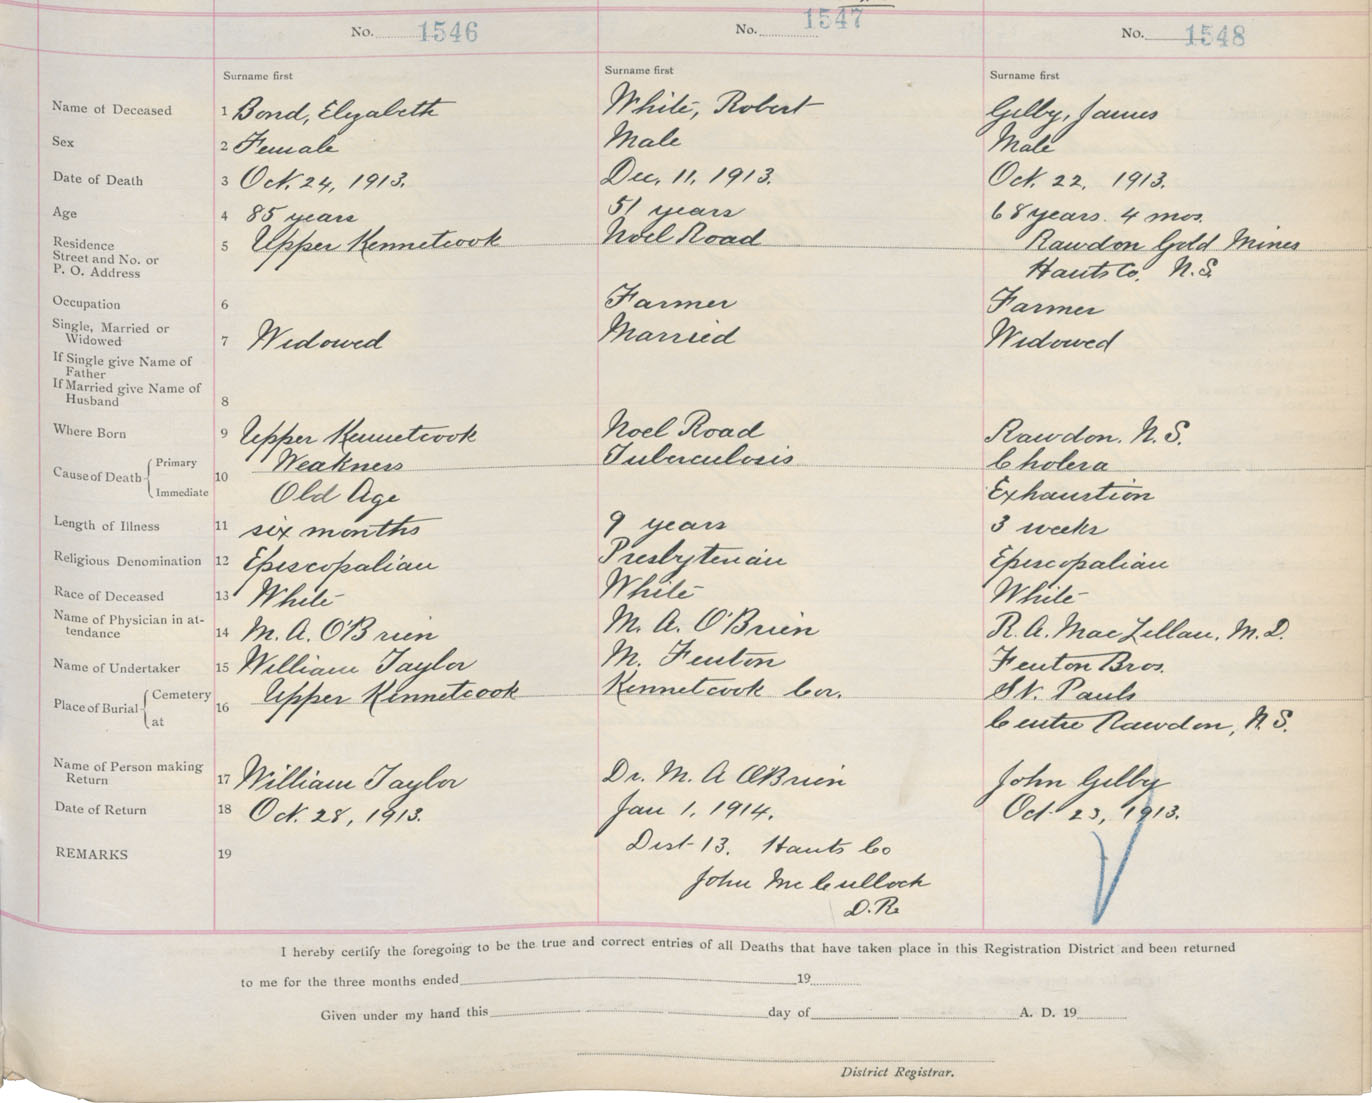 No. 1546 No. 1547 No. 1548
Surname first Surname first Surname first
Name of Deceased 1 Bond, Elizabeth White, Robert Gelby, James
Sex 2 Female Male Male
Date of Death 3 Oct. 24, 1913. Dec. 11, 1913. Oct. 22, 1913.
Age 4 85 years 51 years 68 years 4 mos.
Residence
Street and No. or
P. O. Address 5 Upper Kennetcook Noel Road Rawdon Gold Mines
Hants Co, N.S.
Occupation 6 Farmer Farmer
Single, Married or
Widowed 7 Widowed Married Widowed
If Single give Name of
Father
If Married give Name of
Husband 8
Where Born 9 Upper Kennetcook Noel Road Rawdon, N.S.
Cause of Death Primary 10 Weakness Tuberculosis Cholera
Immediate Old Age Exhaustion
Length of Illness 11 six months 9 years 3 weeks
Religious Denomination 12 Episcopalian Presbyterian Episcopalian
Race of Deceased 13 White White White
Name of Physician in at-
tendance 14 M. A. O'Brien M. A. O'Brien R. A. MacLellan, M.D.
Name of Undertaker 15 William Taylor M. Fenton Fenton Bros.
Place of Burial Cemetery 16 Upper Kennetcook Kennetcook Cor. St. Pauls
at Centre Rawdon, N.S.
Name of Person making
Return 17 William Taylor Dr. M. A O'Brien John Gelby
Date of Return 18 Oct. 28, 1913. Jan 1, 1914. Oct. 23, 1913.
REMARKS 19 Dist 13. Hants Co
John McCulloch
D.R.
I hereby certify the foregoing to be the true and correct entries of all Deaths that have taken place in this Registration District and been returned
to me for the three months ended 19
Given under my hand this day of A. D. 19
District Registrar.